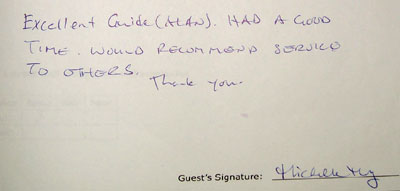 Excellent Guide (ALAN). HAD A GOOD
TIME. WOULD RECOMMEND SERVICE
TO OTHERS.
Thank you.
Guest's Signature: Michelle